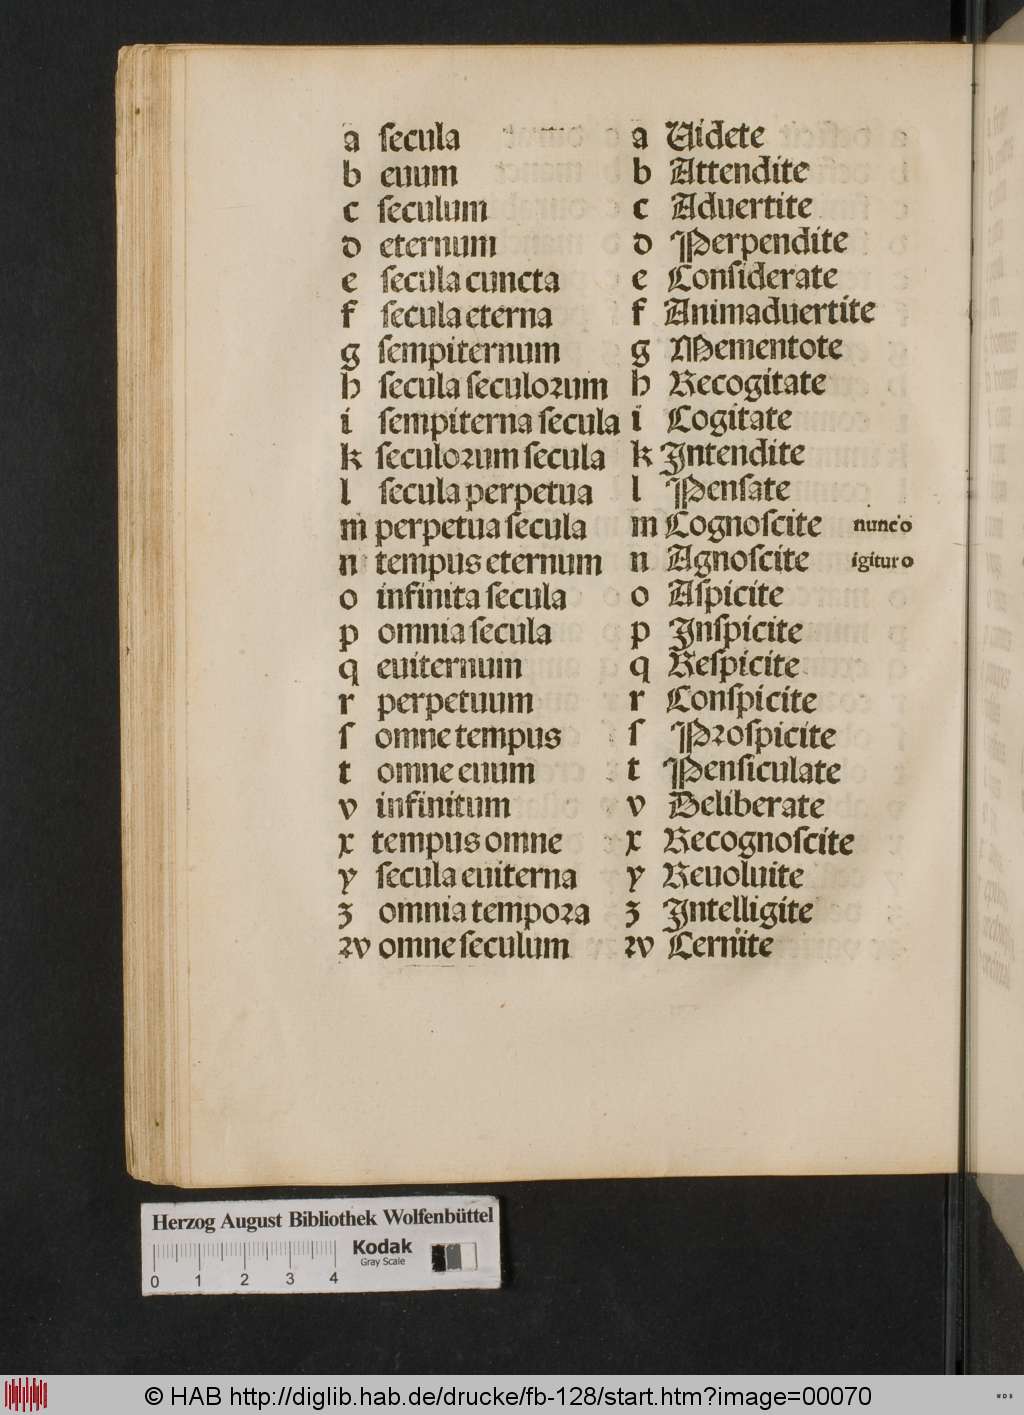 a secula
b euum
c seculum
d eternum
e secula cuncta
f secula eterna
g sempiternum
h secula seculorum
i sempiterna secula
k seculorum secula
l secula perpetua
m perpetua secula
n tempus eternum
o infinita secula
p omnia secula
q euiternum
r perpetuum
s omne tempus
t omne euum
v infinitum
x tempus omne
y secula euiterna
z omnia tempora
rv omne seculum
a Uidete
b Attendite
c Aduertite
d Perpendite
e Considerate
f Animaduertite
g Mementote
h Recogitate
i Cogitate
k Intendite
l Pensate
m Cognoscite nunc o
n Agnoscite igitur o
o Aspicite
p Inspicite
q Respicite
r Conspicite
s Prospicite
t Pensiculate
v Deliberate
x Recognoscite
y Reuoluite
z Intelligite
rv Cernite
Herzog August Bibliothek Wolfenbüttel
Kodak
Gray Scale
0 1 2 3 4
© HAB http://diglib.hab.de/drucke/fb-128/start.htm?image=00070